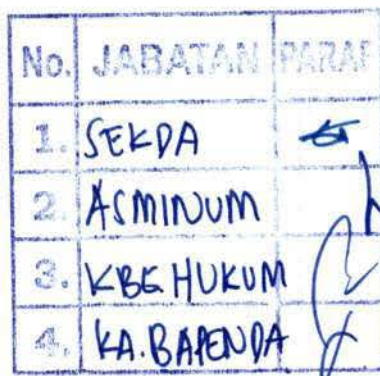 No. JABATAN PARAF
1. SEKDA
2. ASMINUM
3. KBG HUKUM
4. KA. BAPENDA